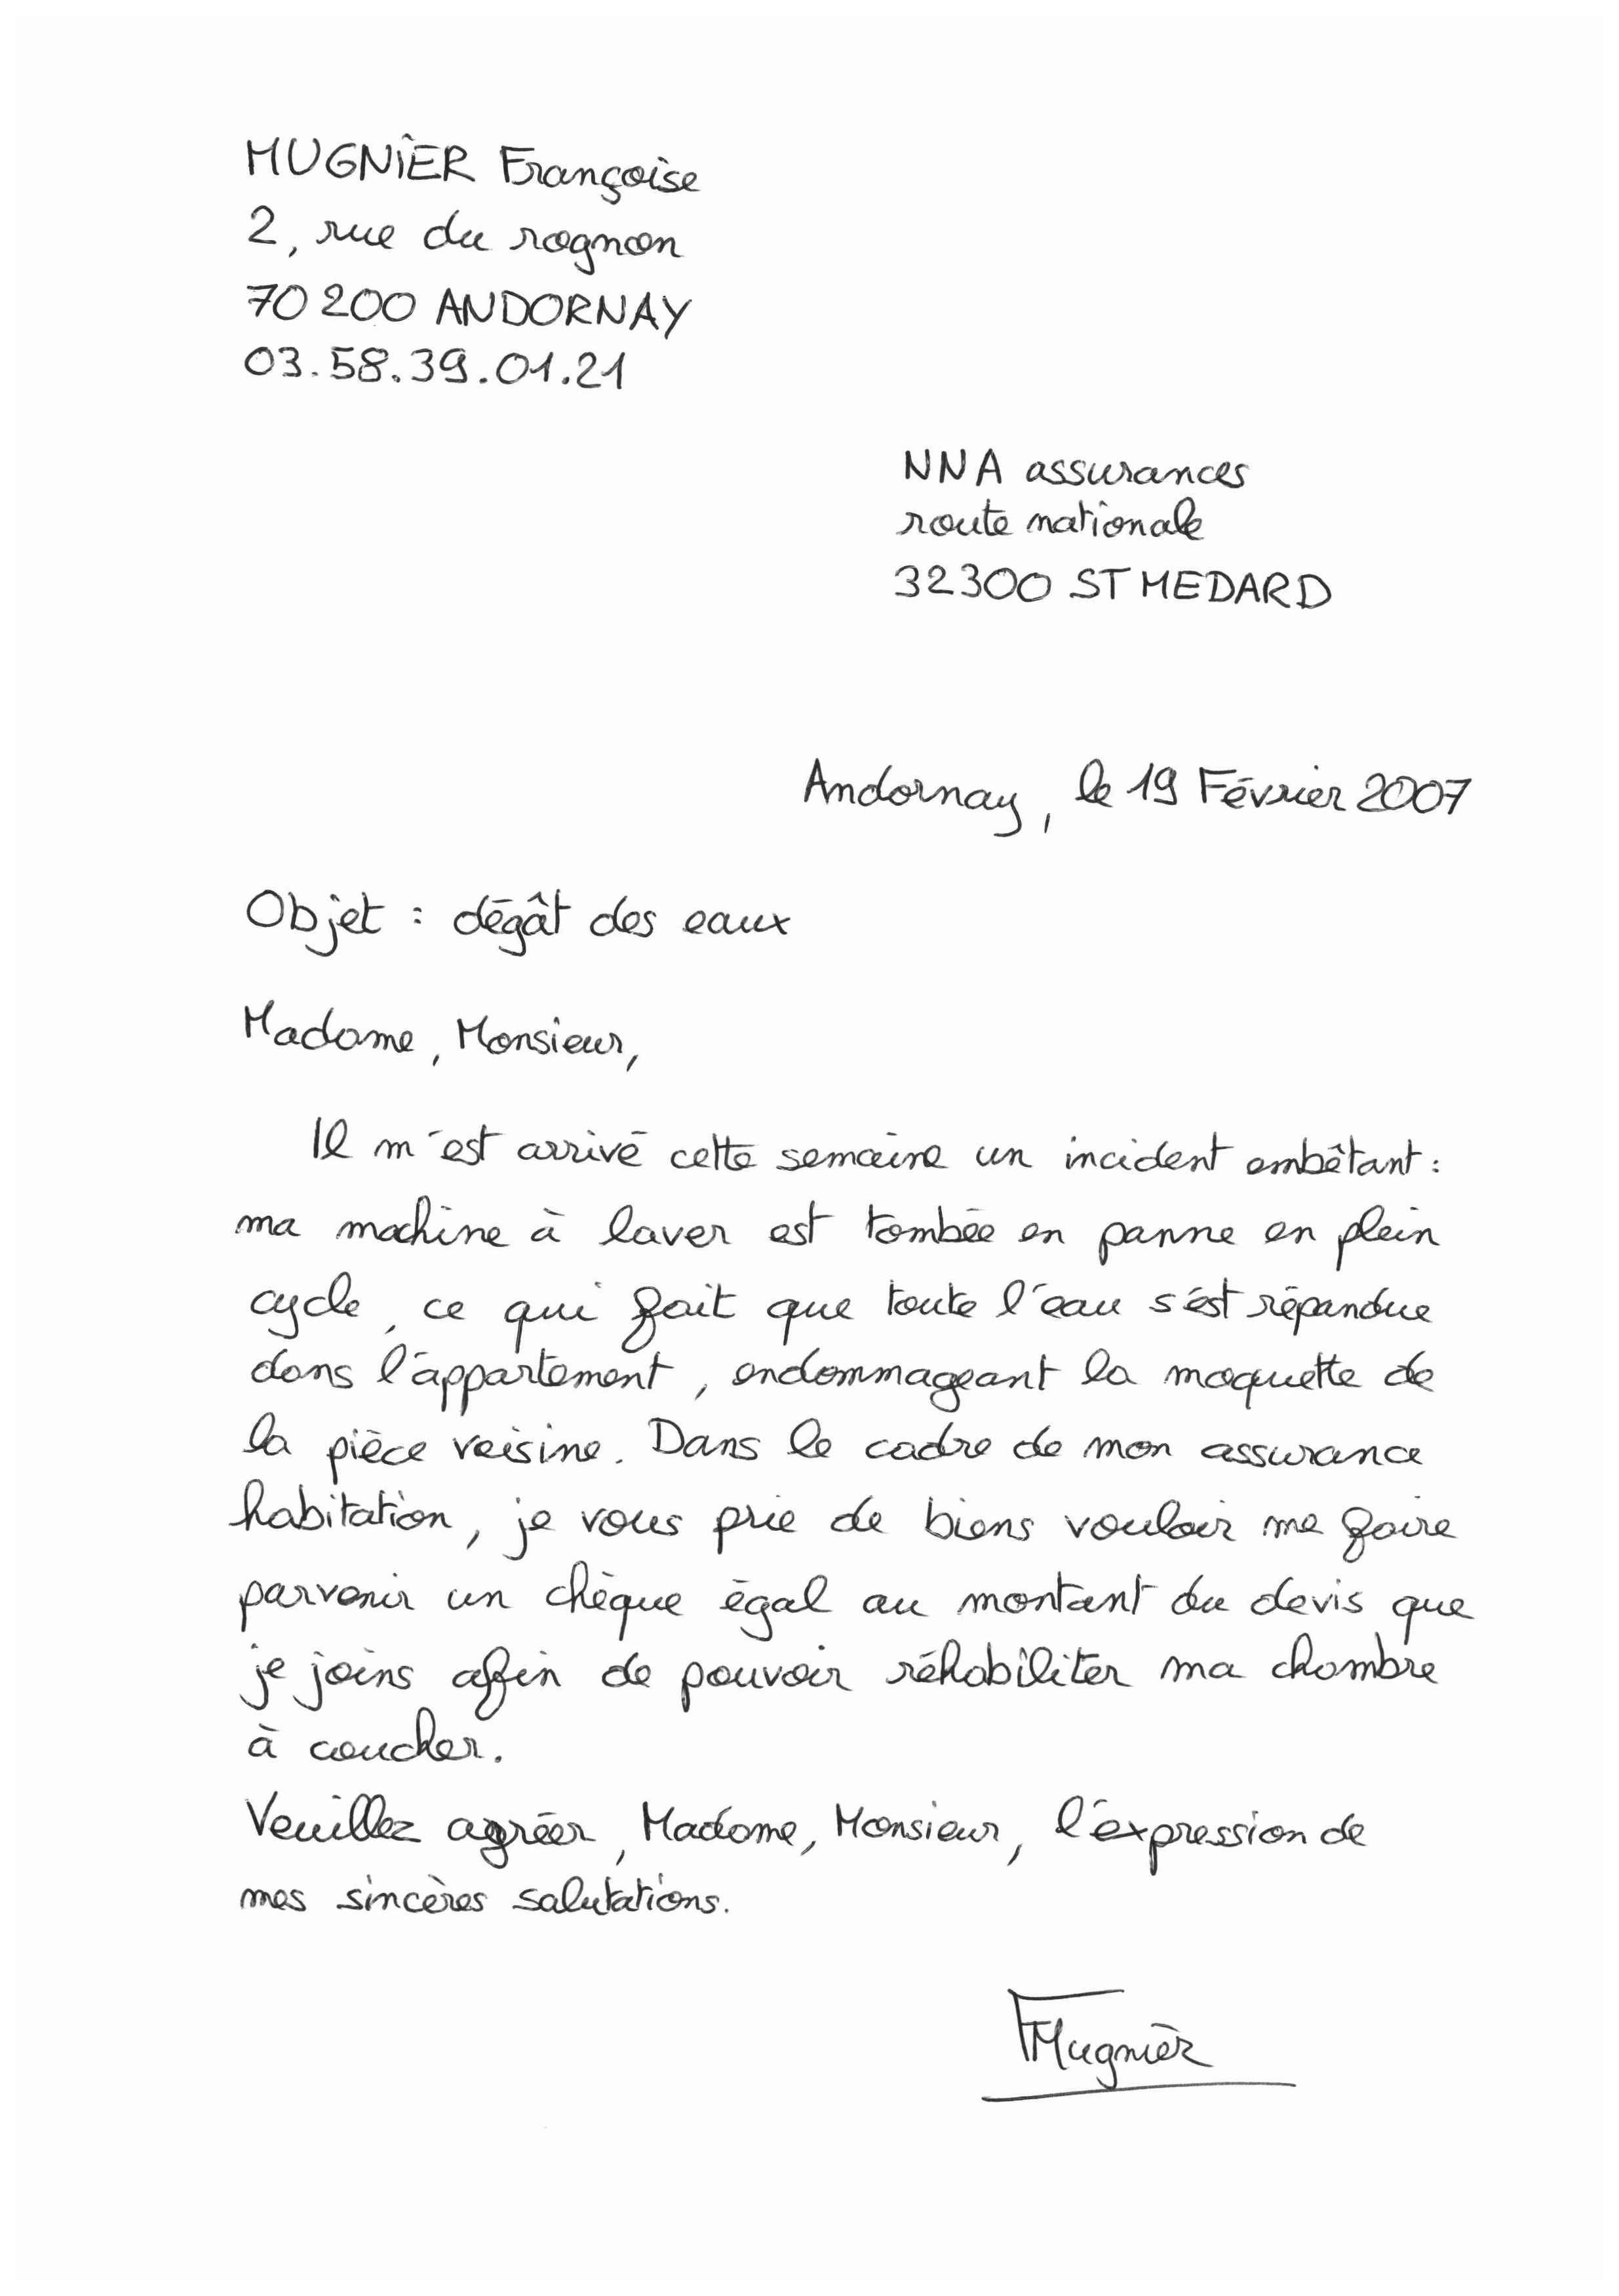 MUGNIER Françoise
2, rue du rognon
70200 ANDORNAY
03.58.39.01.21
NNA assurances
route nationale
32300 ST MEDARD
Andornay, le 19 Février 2007
Objet : dégât des eaux
Madame, Monsieur,
Il m'est arrivé cette semaine un incident embêtant :
ma machine à laver est tombée en panne en plein
cycle, ce qui fait que toute l'eau s'est répandue
dans l'appartement, endommageant la moquette de
la pièce voisine. Dans le cadre de mon assurance
habitation, je vous prie de biens vouloir me faire
parvenir un chèque égal au montant du devis que
je joins affin de pouvoir réhabiliter ma chambre
à coucher.
Veuillez agréer, Madame, Monsieur, l'expression de
mes sincères salutations.
FMugnier